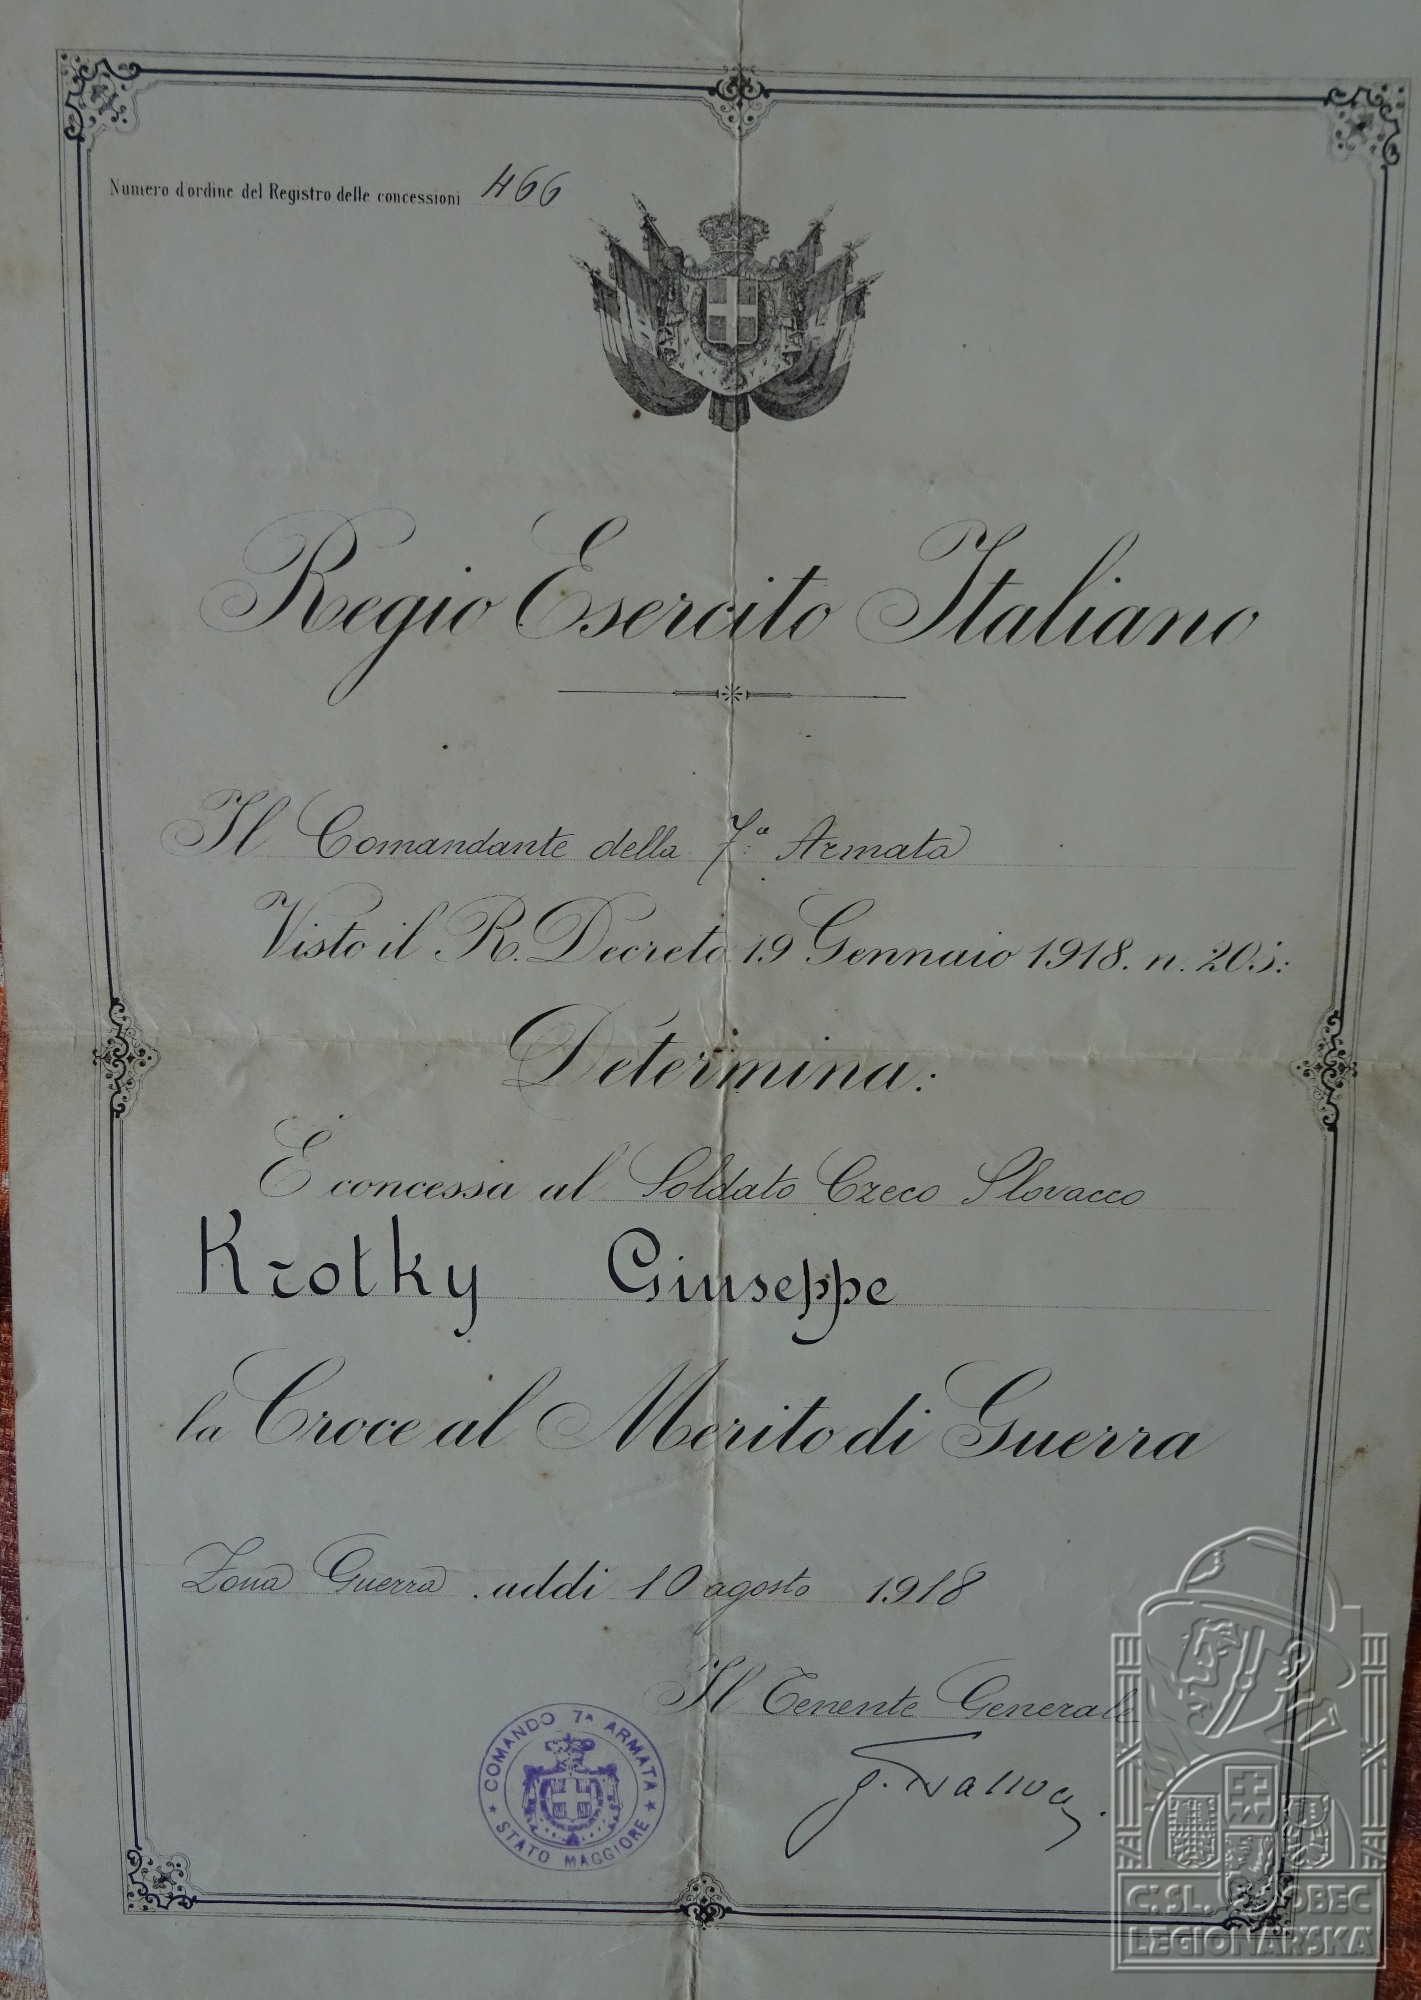 Numero d'ordine del Registro delle concessioni 466
Regio Esercito Italiano
Il Comandante della 7ª Armata
Visto il R. Decreto 19 Gennaio 1918. n. 205:
Determina:
È concessa al Soldato Czeco Slovacco
Krotky Giuseppe
la Croce al Merito di Guerra
Zona Guerra . addì 10 agosto 1918
Il Tenente Generale
COMANDO 7ª ARMATA
★ STATO MAGGIORE ★
Č.SL. OBEC
LEGIONÁŘSKÁ